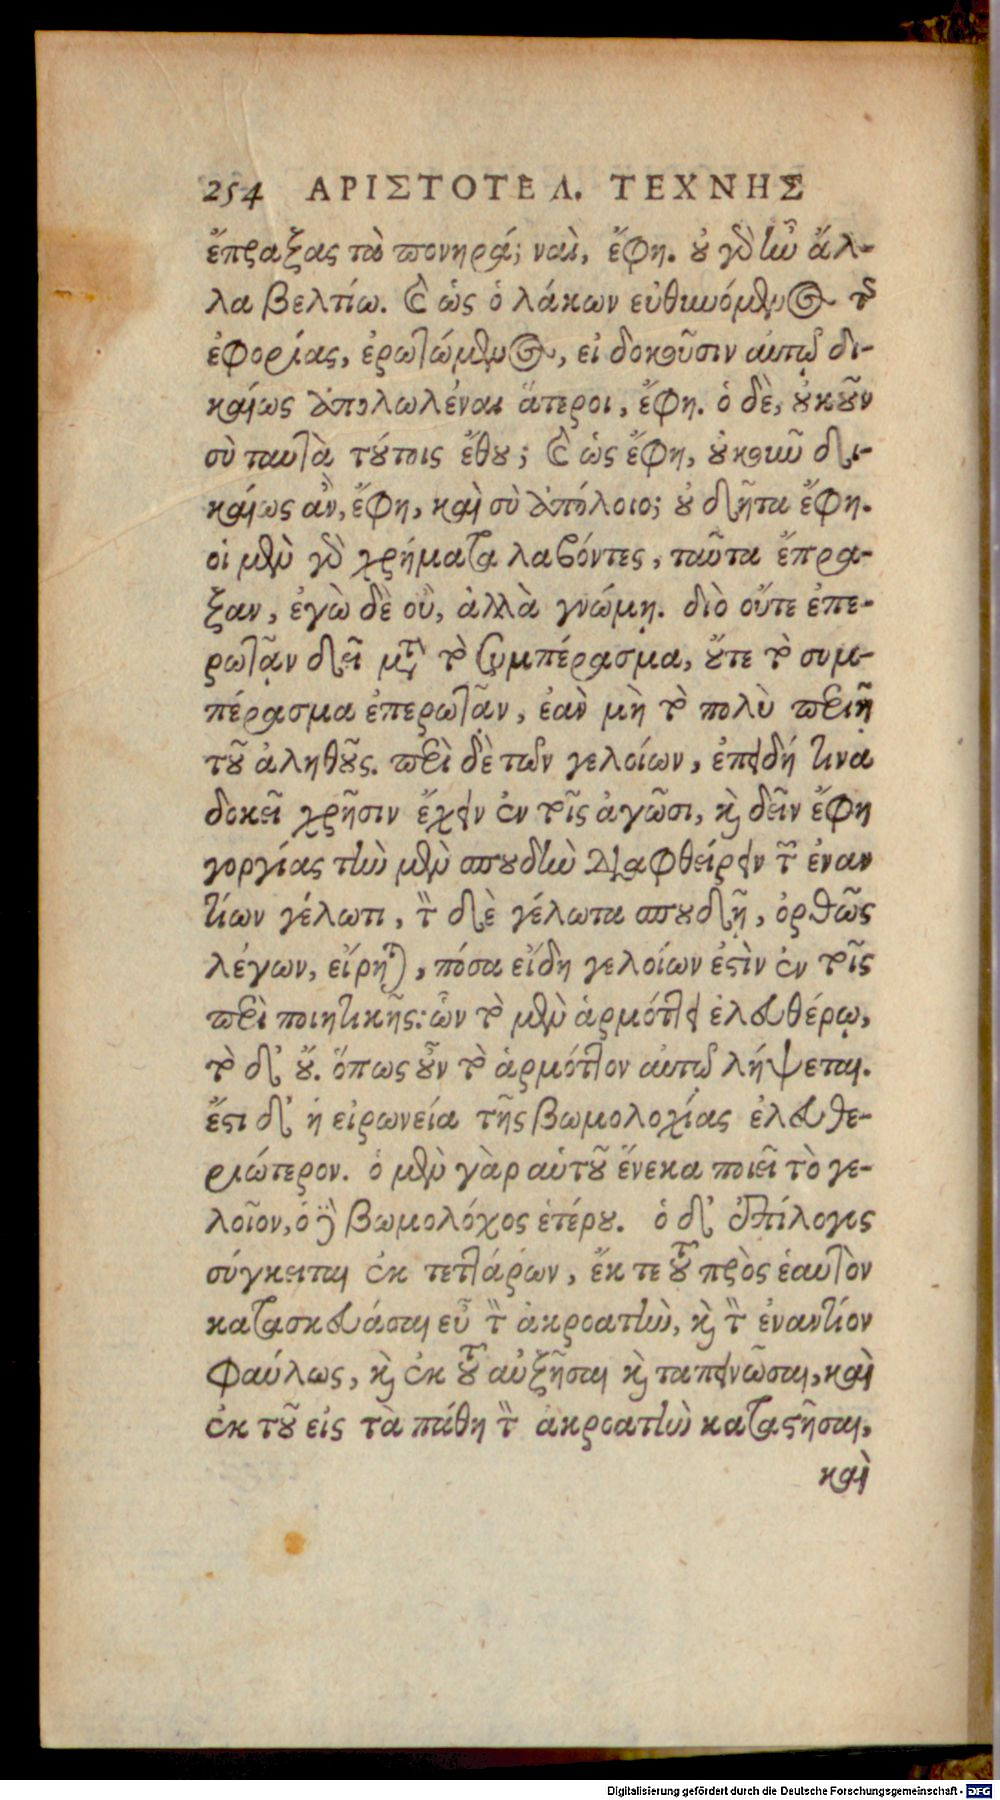 254 ΑΡΙΣΤΟΤΕΛ. ΤΕΧΝΗΣ
ἔπραξας τὰ πονηρά; ναὶ, ἔφη. οὐ γὰρ ἦν ἄλ-
λα βελτίω. καὶ ὡς ὁ λάκων εὐθυνόμενος τῆς
ἐφορίας, ἐρωτώμενος, εἰ δοκοῦσιν αὐτῷ δι-
καίως ἀπολωλέναι ἅτεροι, ἔφη. ὁ δὲ, οὐκοῦν
σὺ ταυτὰ τούτοις ἔθου; καὶ ὡς ἔφη, οὐκοῦν δι-
καίως ἂν, ἔφη, καὶ σὺ ἀπόλοιο; οὐ δῆτα ἔφη.
οἱ μὲν γὰρ χρήματα λαβόντες, ταῦτα ἔπρα-
ξαν, ἐγὼ δὲ οὒ, ἀλλὰ γνώμῃ. διὸ οὔτε ἐπε-
ρωτᾷν δεῖ μετὰ τὸ συμπέρασμα, οὔτε τὸ συμ-
πέρασμα ἐπερωτᾷν, ἐὰν μὴ τὸ πολὺ περιῇ
τοῦ ἀληθοῦς. περὶ δὲ τῶν γελοίων, ἐπειδή τινα
δοκεῖ χρῆσιν ἔχειν ἐν τοῖς ἀγῶσι, καὶ δεῖν ἔφη
γοργίας τὴν μὲν σπουδὴν διαφθείρειν τῶν ἐναν
τίων γέλωτι, τὸν δὲ γέλωτα σπουδῇ, ὀρθῶς
λέγων, εἴρηται, πόσα εἴδη γελοίων ἐστὶν ἐν τοῖς
περὶ ποιητικῆς: ὧν τὸ μὲν ἁρμόττει ἐλευθέρῳ,
τὸ δ' οὔ. ὅπως οὖν τὸ ἁρμόττον αὐτῷ λήψεται.
ἔστι δ' ἡ εἰρωνεία τῆς βωμολοχίας ἐλευθε-
ριώτερον. ὁ μὲν γὰρ αὑτοῦ ἕνεκα ποιεῖ τὸ γε-
λοῖον, ὁ δὲ βωμολόχος ἑτέρου. ὁ δ' ἐπίλογος
σύγκειται ἐκ τεττάρων, ἔκ τε τοῦ πρὸς ἑαυτὸν
κατασκευάσαι εὖ τὸν ἀκροατὴν, καὶ τὸν ἐναντίον
φαύλως, καὶ ἐκ τοῦ αὐξῆσαι καὶ ταπεινῶσαι, καὶ
ἐκ τοῦ εἰς τὰ πάθη τὸν ἀκροατὴν καταστῆσαι,
καὶ
Digitalisierung gefördert durch die Deutsche Forschungsgemeinschaft - DFG